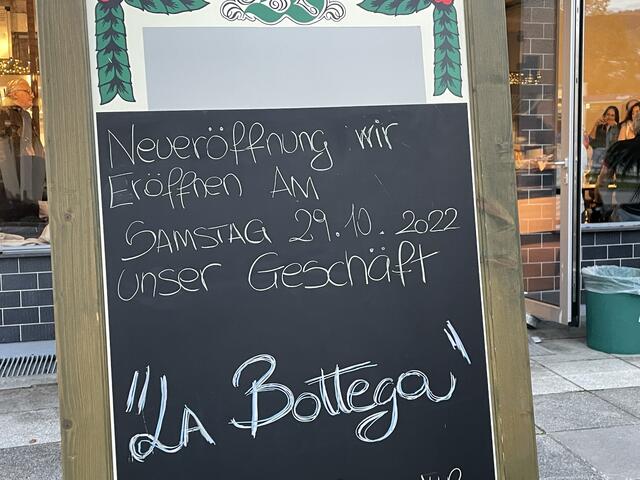 Neueröffnung wir
Eröffnen Am
Samstag 29.10.2022
unser Geschäft
"La Bottega"